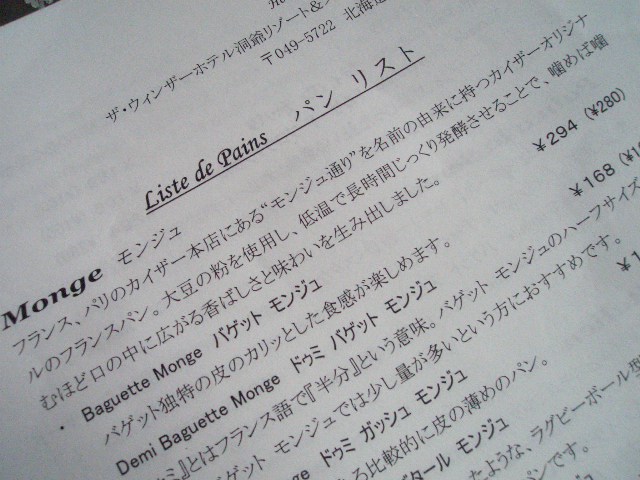 ザ・ウィンザーホテル洞爺リゾート&
〒049-5722 北海道
Liste de Pains パン リスト
Monge モンジュ
フランス、パリのカイザー本店にある“モンジュ通り”を名前の由来に持つカイザーオリジナ
ルのフランスパン。大豆の粉を使用し、低温で長時間じっくり発酵させることで、噛めば噛
むほど口の中に広がる香ばしさと味わいを生み出しました。
・ Baguette Monge バゲット モンジュ ¥294 (¥280)
バゲット独特の皮のカリッとした食感が楽しめます。
Demi Baguette Monge ドゥミ バゲット モンジュ ¥168
ミ』とはフランス語で『半分』という意味。バゲット モンジュのハーフサイズ
バゲット モンジュでは少し量が多いという方におすすめです。
Monge ドゥミ ガッシュ モンジュ
る比較的に皮の薄めのパン。
バタール モンジュ
たような、ラグビーボール型
パンです。